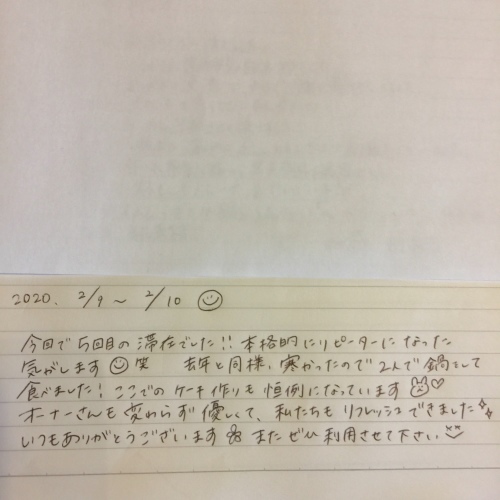 2020. 2/9 ~ 2/10 ☺
今回で5回目の滞在でした!! 本格的にリピーターになった
気がします☺笑 去年と同様、寒かったので2人で鍋をして
食べました! ここでのケーキ作りも恒例になっています🐰♡
オーナーさんも変わらず優しくて、私たちもリフレッシュできました✨
いつもありがとうございます✿ またぜひ利用させて下さい☺